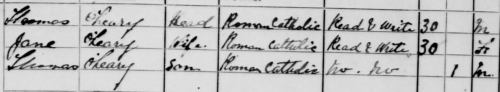 Thomas O'Leary Head Roman Catholic Read & Write 30 M
Jane O'Leary Wife Roman Catholic Read & Write 30 F
Thomas O'Leary Son Roman Catholic No. No 1 M